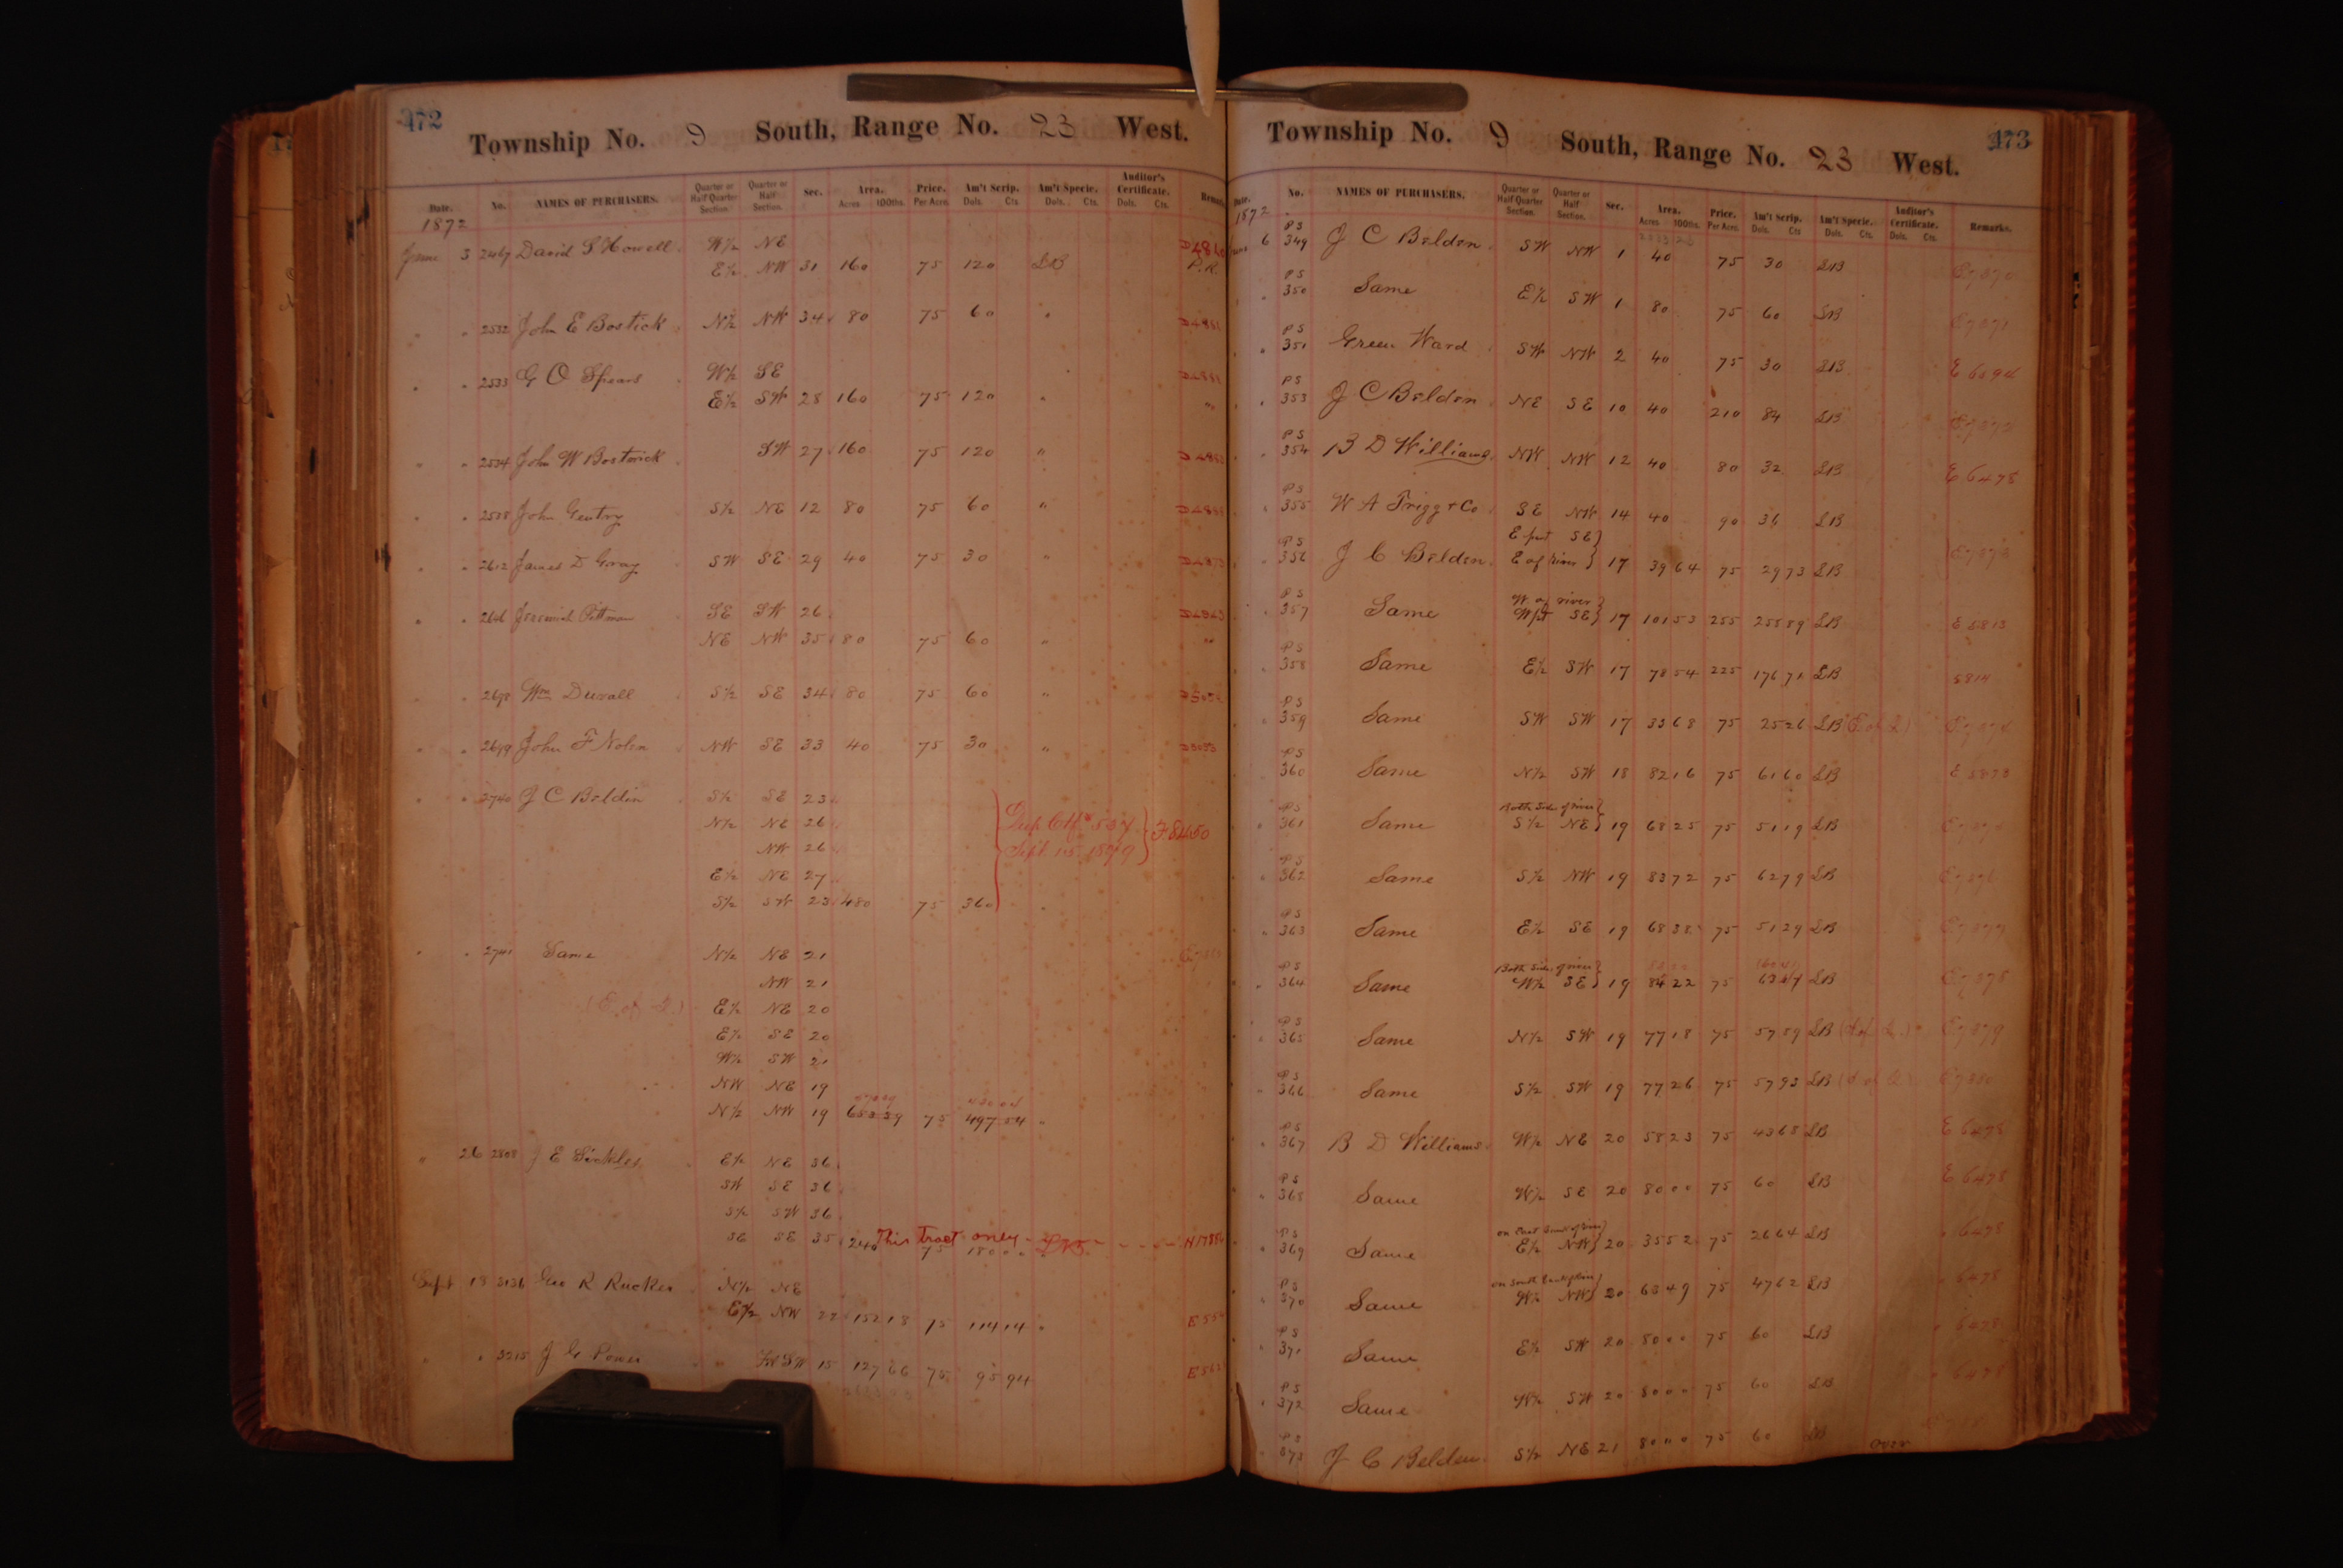 472
Township No. 9 South, Range No. 23 West.
Date. No. NAMES OF PURCHASERS. Quarter or Half Quarter Section. Quarter or Half Section. Sec. Area. Acres 100ths. Price. Per Acre. Am't Scrip. Dols. Cts. Am't Specie. Dols. Cts. Auditor's Certificate. Dols. Cts.
1872
June 3 2467 David S Howell W½ NE
E½ NW 31 160 75 120 LB P.R.
" " 2532 John E Bostick N½ NW 34 80 75 60 "
" " 2533 G O Spears W½ SE
E½ SW 28 160 75 120 "
" " 2534 John W Bostwick SW 27 160 75 120 "
" " 2538 John Gentry S½ NE 12 80 75 60 "
" " 2612 James D Gray SW SE 29 40 75 30 "
" " 2646 Jeremiah Pittman SE SW 26
NE NW 35 80 75 60 "
" " 2698 Wm Duvall S½ SE 34 80 75 60 "
" " 2699 John F Nolen NW SE 33 40 75 30 "
" " 2740 J C Beldin S½ SE 23
N½ NE 26 Sept 15 1899 F 8450
NW 26
E½ NE 27
S½ SW 23 480 75 360
" " 2741 Same N½ NE 21
NW 21
(E. of Q.) E½ NE 20
E½ SE 20
W½ SW 21
NW NE 19
N½ NW 19 75 497.54 "
" 26 2808 J E Sickles E½ NE 36
SW SE 36
S½ SW 36
This tract only
SE SE 35 240 75 180
Sept 18 3136 Geo R Rucker N½ NE
E½ NW 22 152 18 75 114 14 "
" " 3215 J G Power SW 15 127 66 75 95 94
473
Township No. 9 South, Range No. 23 West.
Date. No. NAMES OF PURCHASERS. Quarter or Half Quarter Section. Quarter or Half Section. Sec. Area. Acres 100ths. Price. Per Acre. Am't Scrip. Dols. Cts Am't Specie. Dols. Cts. Auditor's Certificate. Dols. Cts. Remarks.
1872
June 6 PS 349 J C Belden SW NW 1 40 75 30 LB E7870
" PS 350 Same E½ SW 1 80 75 60 LB E7871
" PS 351 Green Ward SW NW 2 40 75 30 LB
" PS 353 J C Belden NE SE 10 40 210 84 LB E7872
" PS 354 B D Williams NW NW 12 40 80 32 LB E 6478
" PS 355 W A Trigg & Co SE NW 14 40 90 36 LB
E pt SE
" PS 356 J C Belden E of river 17 39 64 75 29 73 LB E7873
W of river
" PS 357 Same W pt SE 17 101 53 255 258 89 LB E 5813
" PS 358 Same E½ SW 17 78 54 225 176 71 LB 5814
" PS 359 Same SW SW 17 33 68 75 25 26 LB (E of Q) E7874
" PS 360 Same N½ SW 18 82 16 75 61 60 LB E 5873
Both Sides of river
" PS 361 Same S½ NE 19 68 25 75 51 19 LB E7875
" PS 362 Same S½ NW 19 83 72 75 62 79 LB E7876
" PS 363 Same E½ SE 19 68 38 75 51 29 LB E7877
Both Sides of river
" PS 364 Same W½ SE 19 84 22 75 LB E7878
" PS 365 Same N½ SW 19 77 18 75 57 89 LB E7879
" PS 366 Same S½ SW 19 77 26 75 57 93 LB E7880
" PS 367 B D Williams W½ NE 20 58 23 75 43 68 LB E 6478
" PS 368 Same W½ SE 20 80 00 75 60 LB E 6478
on East Bank of River
" PS 369 Same E½ NW 20 35 52 75 26 64 LB " 6478
on South Bank of River
" PS 370 Same W½ NW 20 63 49 75 47 62 LB " 6478
" PS 371 Same E½ SW 20 80 00 75 60 LB " 6478
" PS 372 Same W½ SW 20 80 00 75 60 LB " 6478
" PS 373 J C Belden S½ NE 21 80 00 75 60 LB over